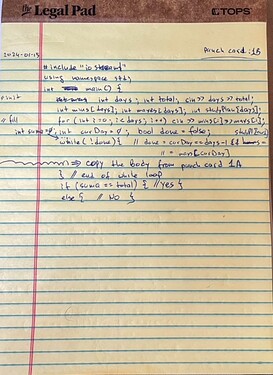 the Legal Pad
TOPS
2024-01-15 punch card : 1B
#include "iostream"
using namespace std;
int main() {
//init int days; int total; cin >> days >> total;
int mins[days]; int maxes[days]; int studyPlan[days];
// fill for (int i=0; i<days; i++) cin >> mins[i] >> maxes[i];
int sum=0; int curDay=0; bool done = false;
while (!done) { // done = curDay==days-1 &&
// = max[curDay]
⇒ copy the body from punch card 1A
} // end of while loop
if (sum == total) { // Yes }
else { // NO }